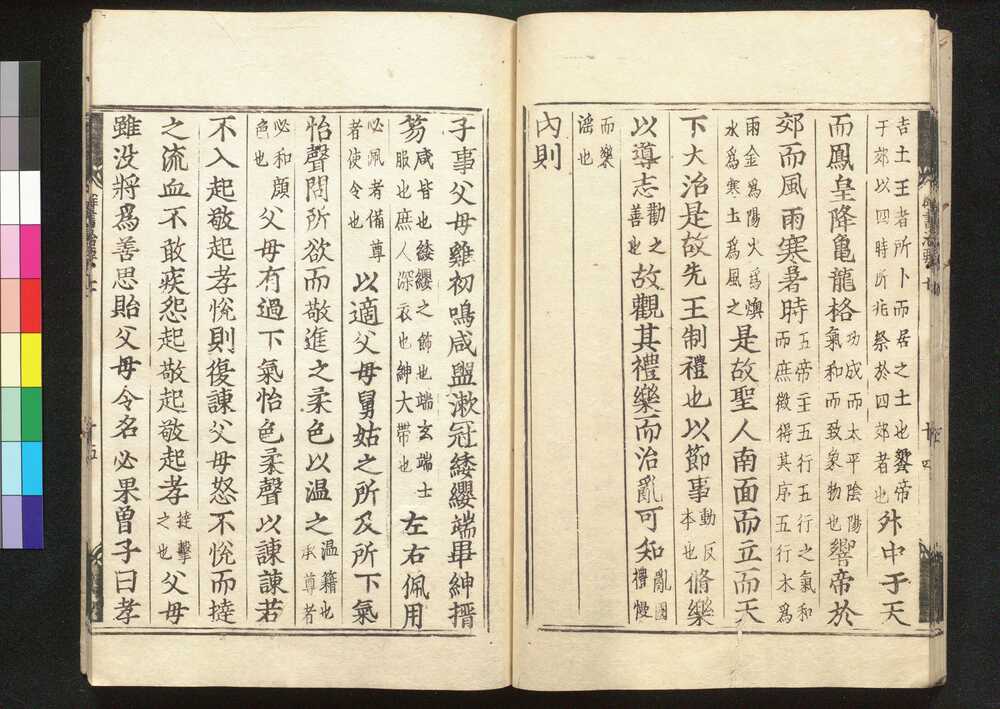 吉土王者所卜而居之土也饗帝
于郊以四時所兆祭於四郊者也
升中于天
而鳳皇降龜龍格
功成而太平陰陽
氣和而致象物也
饗帝於
郊而風雨寒暑時
五帝主五行五行之氣和
而庶徵得其序五行木爲
雨金爲陽火爲燠
水爲寒土爲風之
是故聖人南面而立而天
下大治是故先王制禮也以節事
動反
本也
脩樂
以導志
勸之
善也
故觀其禮樂而治亂可知
亂國
禮慢
而樂
滛也
內則
子事父母雞初鳴咸盥漱冠緌纓端畢紳搢
笏
咸皆也緌纓之飾也端玄端士
服也庶人深衣也紳大帶也
左右佩用
必佩者備尊
者使令也
以適父母舅姑之所及所下氣
怡聲問所欲而敬進之柔色以温之
温籍也
承尊者
必和顔
色也
父母有過下氣怡色柔聲以諫諫若
不入起敬起孝悅則復諫父母怒不悅而撻
之流血不敢疾怨起敬起敬起孝
撻擊
之也
父母
雖没將爲善思貽父母令名必果曾子曰孝